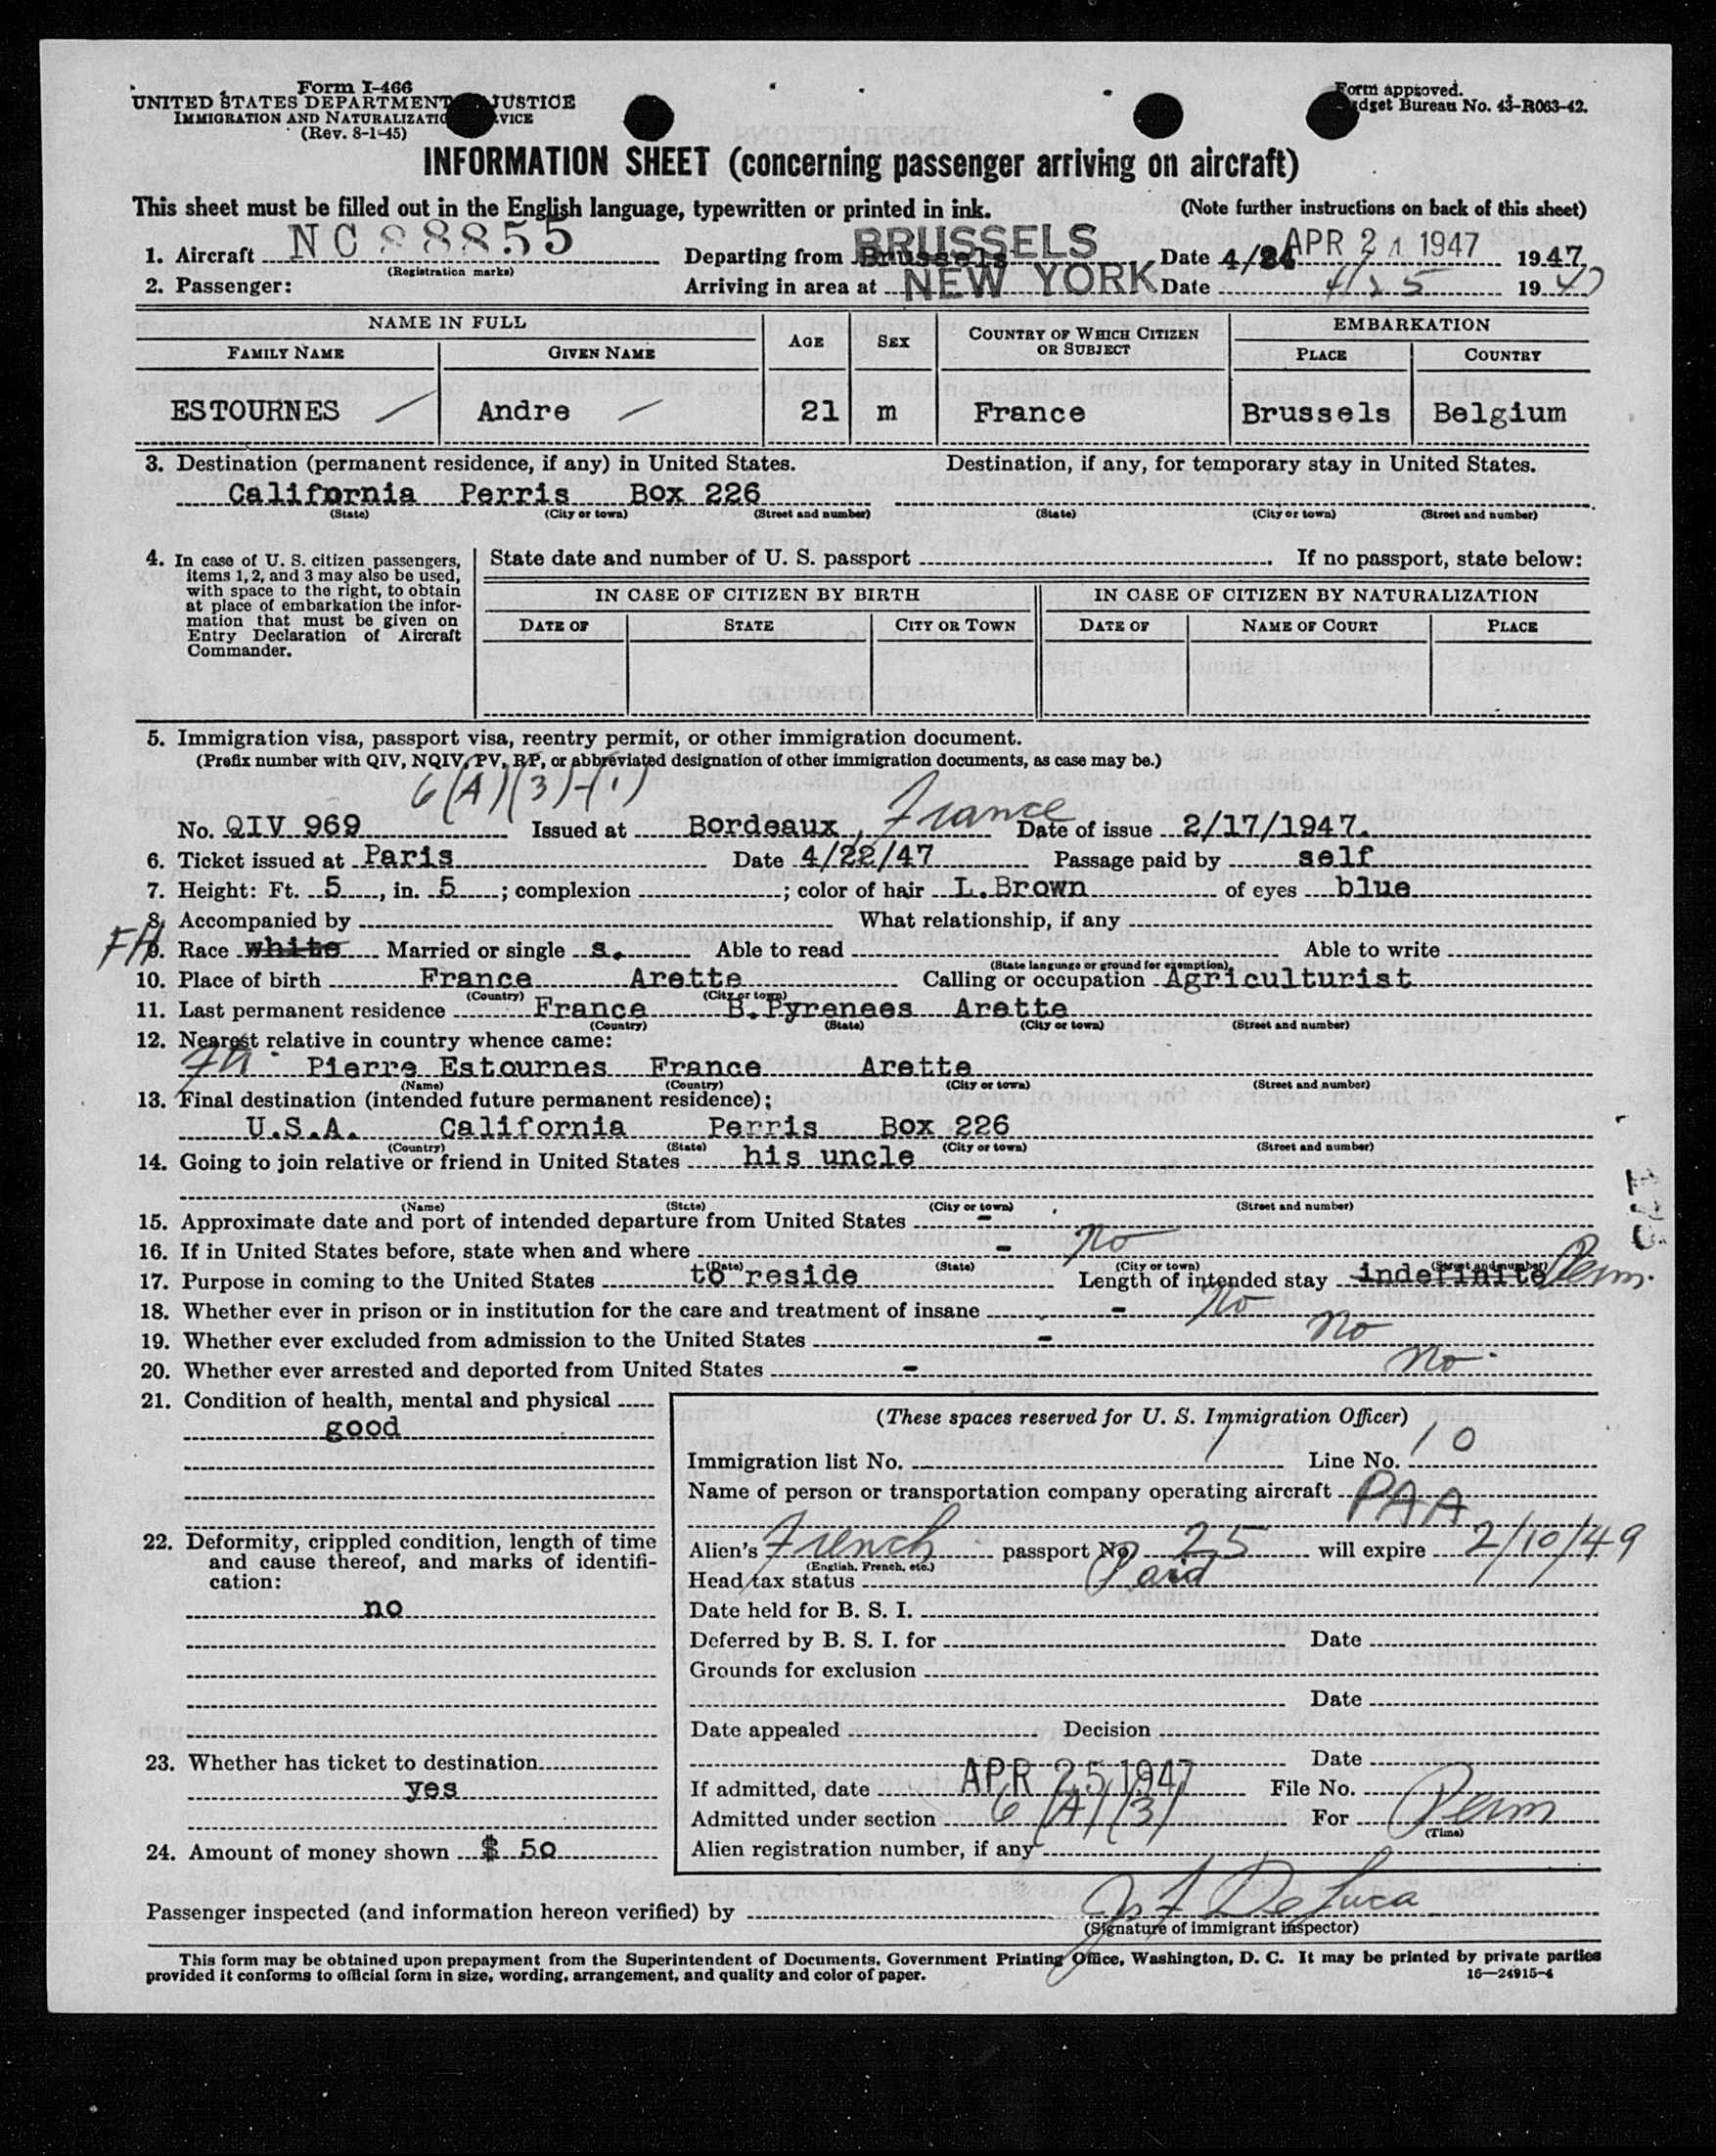 Form I-466
UNITED STATES DEPARTMENT JUSTICE
IMMIGRATION AND NATURALIZATIO RVICE
(Rev. 8-1-45)
Form approved.
dget Bureau No. 43-R063-42.
INFORMATION SHEET (concerning passenger arriving on aircraft)
This sheet must be filled out in the English language, typewritten or printed in ink. (Note further instructions on back of this sheet)
1. Aircraft NC 88855 Departing from Brussels BRUSSELS Date 4/24 APR 24 1947 1947
(Registration marks)
2. Passenger: Arriving in area at NEW YORK Date 4/25 1947
NAME IN FULL AGE SEX COUNTRY OF WHICH CITIZEN OR SUBJECT EMBARKATION
FAMILY NAME GIVEN NAME PLACE COUNTRY
ESTOURNES Andre 21 m France Brussels Belgium
3. Destination (permanent residence, if any) in United States. Destination, if any, for temporary stay in United States.
California Perris Box 226
(State) (City or town) (Street and number) (State) (City or town) (Street and number)
4. In case of U. S. citizen passengers, items 1, 2, and 3 may also be used, with space to the right, to obtain at place of embarkation the information that must be given on Entry Declaration of Aircraft Commander.
State date and number of U. S. passport . If no passport, state below:
IN CASE OF CITIZEN BY BIRTH IN CASE OF CITIZEN BY NATURALIZATION
DATE OF STATE CITY OR TOWN DATE OF NAME OF COURT PLACE
5. Immigration visa, passport visa, reentry permit, or other immigration document.
(Prefix number with QIV, NQIV, PV, RP, or abbreviated designation of other immigration documents, as case may be.)
6(A)(3)-(1)
No. QIV 969 Issued at Bordeaux, France Date of issue 2/17/1947.
6. Ticket issued at Paris Date 4/22/47 Passage paid by self
7. Height: Ft. 5, in. 5; complexion ; color of hair L.Brown of eyes blue
8. Accompanied by What relationship, if any
FH 9. Race white Married or single s. Able to read Able to write
(State language or ground for exemption)
10. Place of birth France Arette Calling or occupation Agriculturist
(Country) (City or town)
11. Last permanent residence France B.Pyrenees Arette
(Country) (State) (City or town) (Street and number)
12. Nearest relative in country whence came:
Fa. Pierre Estournes France Arette
(Name) (Country) (City or town) (Street and number)
13. Final destination (intended future permanent residence):
U.S.A. California Perris Box 226
(Country) (State) (City or town) (Street and number)
14. Going to join relative or friend in United States his uncle
(Name) (State) (City or town) (Street and number)
15. Approximate date and port of intended departure from United States -
16. If in United States before, state when and where - no
(Date) (State) (City or town) (Street and number)
17. Purpose in coming to the United States to reside Length of intended stay indefinite Perm.
18. Whether ever in prison or in institution for the care and treatment of insane - no
19. Whether ever excluded from admission to the United States - no
20. Whether ever arrested and deported from United States - no.
21. Condition of health, mental and physical
good
22. Deformity, crippled condition, length of time and cause thereof, and marks of identification:
no
23. Whether has ticket to destination
yes
24. Amount of money shown $ 50
(These spaces reserved for U. S. Immigration Officer)
Immigration list No. 1 Line No. 10
Name of person or transportation company operating aircraft PAA
Alien's French passport No. 25 will expire 2/10/49
(English, French, etc.)
Head tax status Paid
Date held for B. S. I.
Deferred by B. S. I. for Date
Grounds for exclusion
Date
Date appealed Decision
Date
If admitted, date APR 25 1947 File No.
Admitted under section 6(A)(3) For Perm
(Time)
Alien registration number, if any
Passenger inspected (and information hereon verified) by De Luca
(Signature of immigrant inspector)
This form may be obtained upon prepayment from the Superintendent of Documents, Government Printing Office, Washington, D. C. It may be printed by private parties
provided it conforms to official form in size, wording, arrangement, and quality and color of paper. 16—24915-4